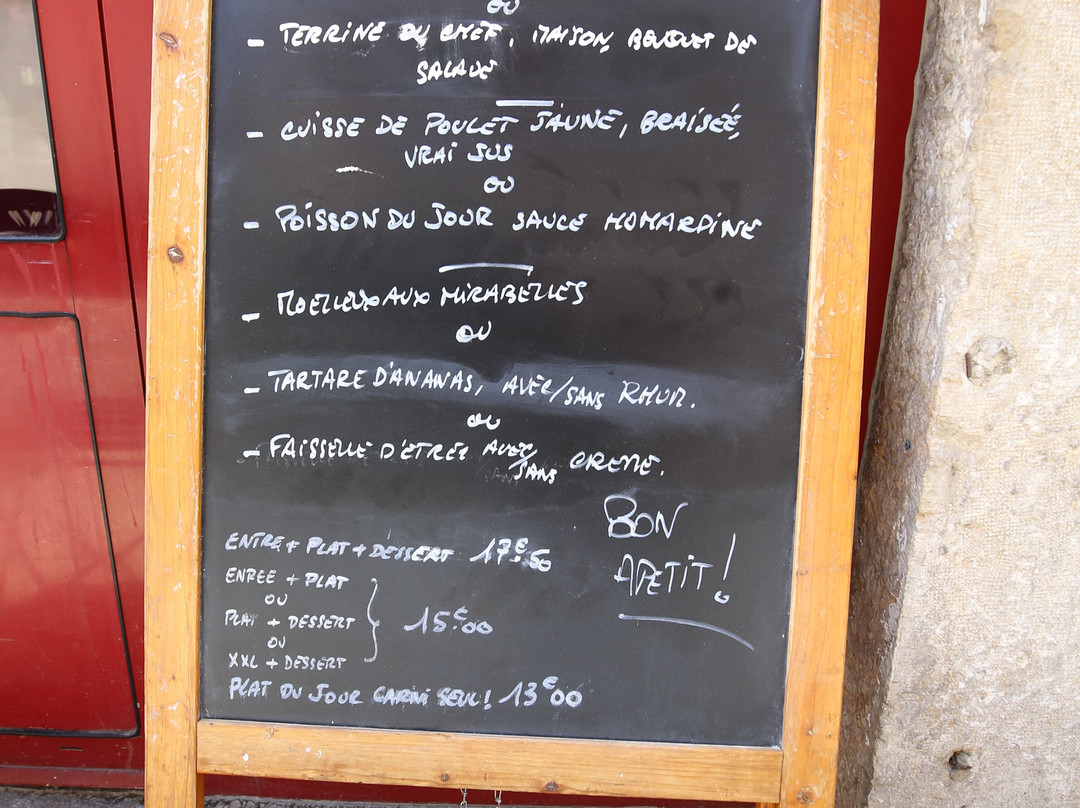 OU
- TERRINE DU CHEF, MAISON, BOUQUET DE
SALADE
- CUISSE DE POULET JAUNE, BRAISÉE,
VRAI JUS
OU
- POISSON DU JOUR SAUCE HOMARDINE
- MOELLEUX AUX MIRABELLES
OU
- TARTARE D'ANANAS, AVEC/SANS RHUM.
OU
- FAISSELLE D'ETREZ AVEC/SANS CREME.
BON
APETIT!
ENTRE + PLAT + DESSERT 17€50
ENREE + PLAT
OU
PLAT + DESSERT
OU
XXL + DESSERT
15€00
PLAT DU JOUR CARNI SEUL! 13€00